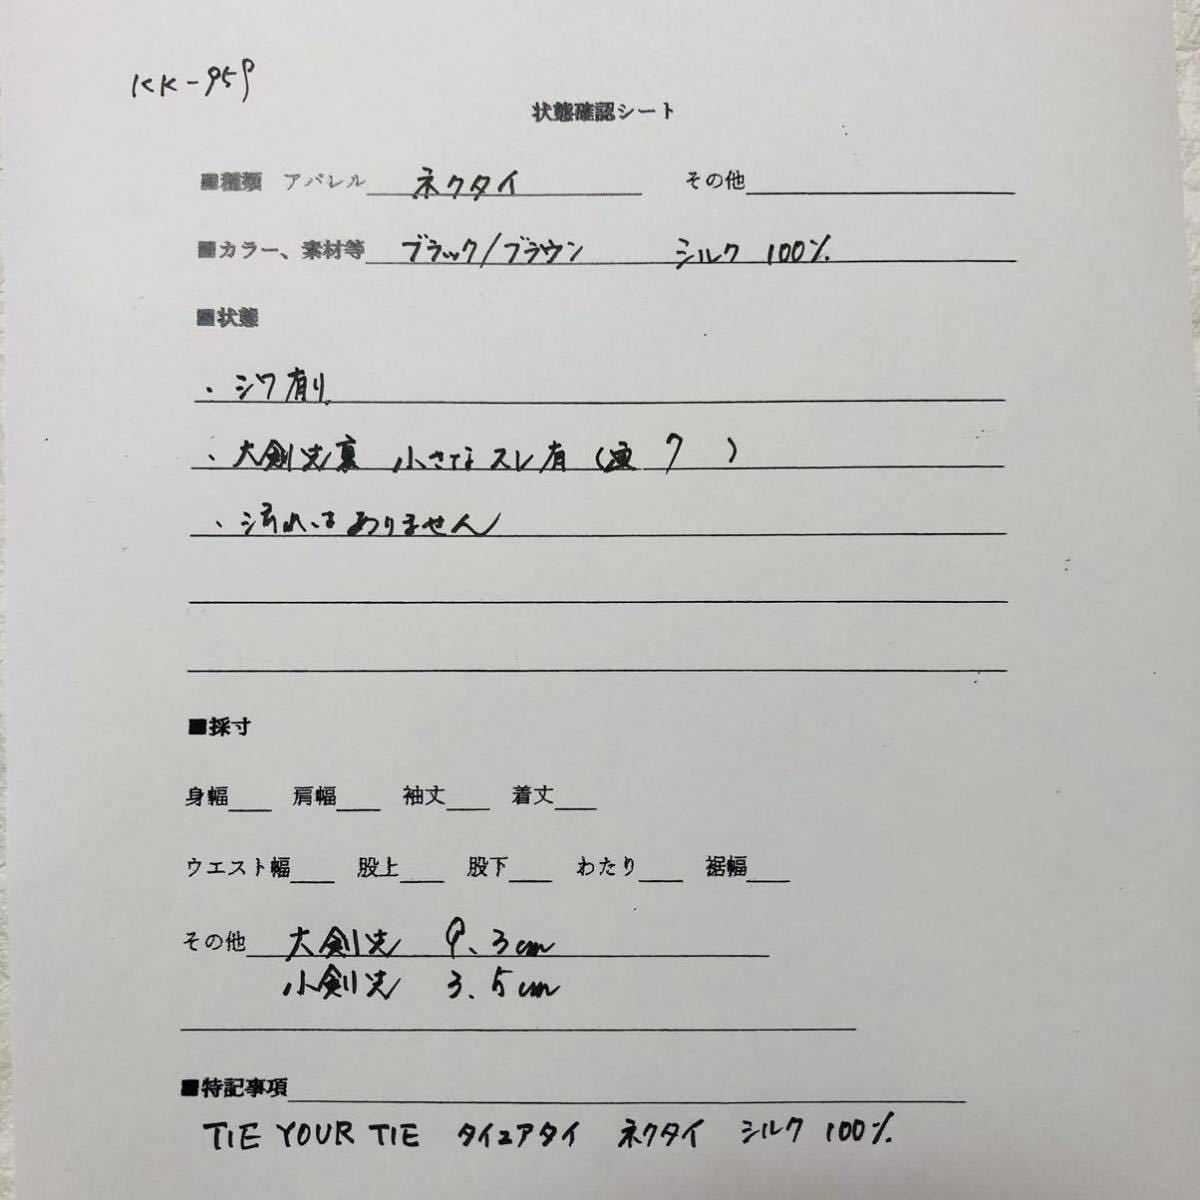 KK-959
状態確認シート
■種類 アパレル ネクタイ その他
■カラー、素材等 ブラック/ブラウン シルク 100%
■状態
・シワ有り
・大剣先裏 小さなスレ有 (画 7 )
・汚れはありません
■採寸
身幅 肩幅 袖丈 着丈
ウエスト幅 股上 股下 わたり 裾幅
その他 大剣先 9.3cm
小剣先 3.5cm
■特記事項
TIE YOUR TIE タイユアタイ ネクタイ シルク 100%